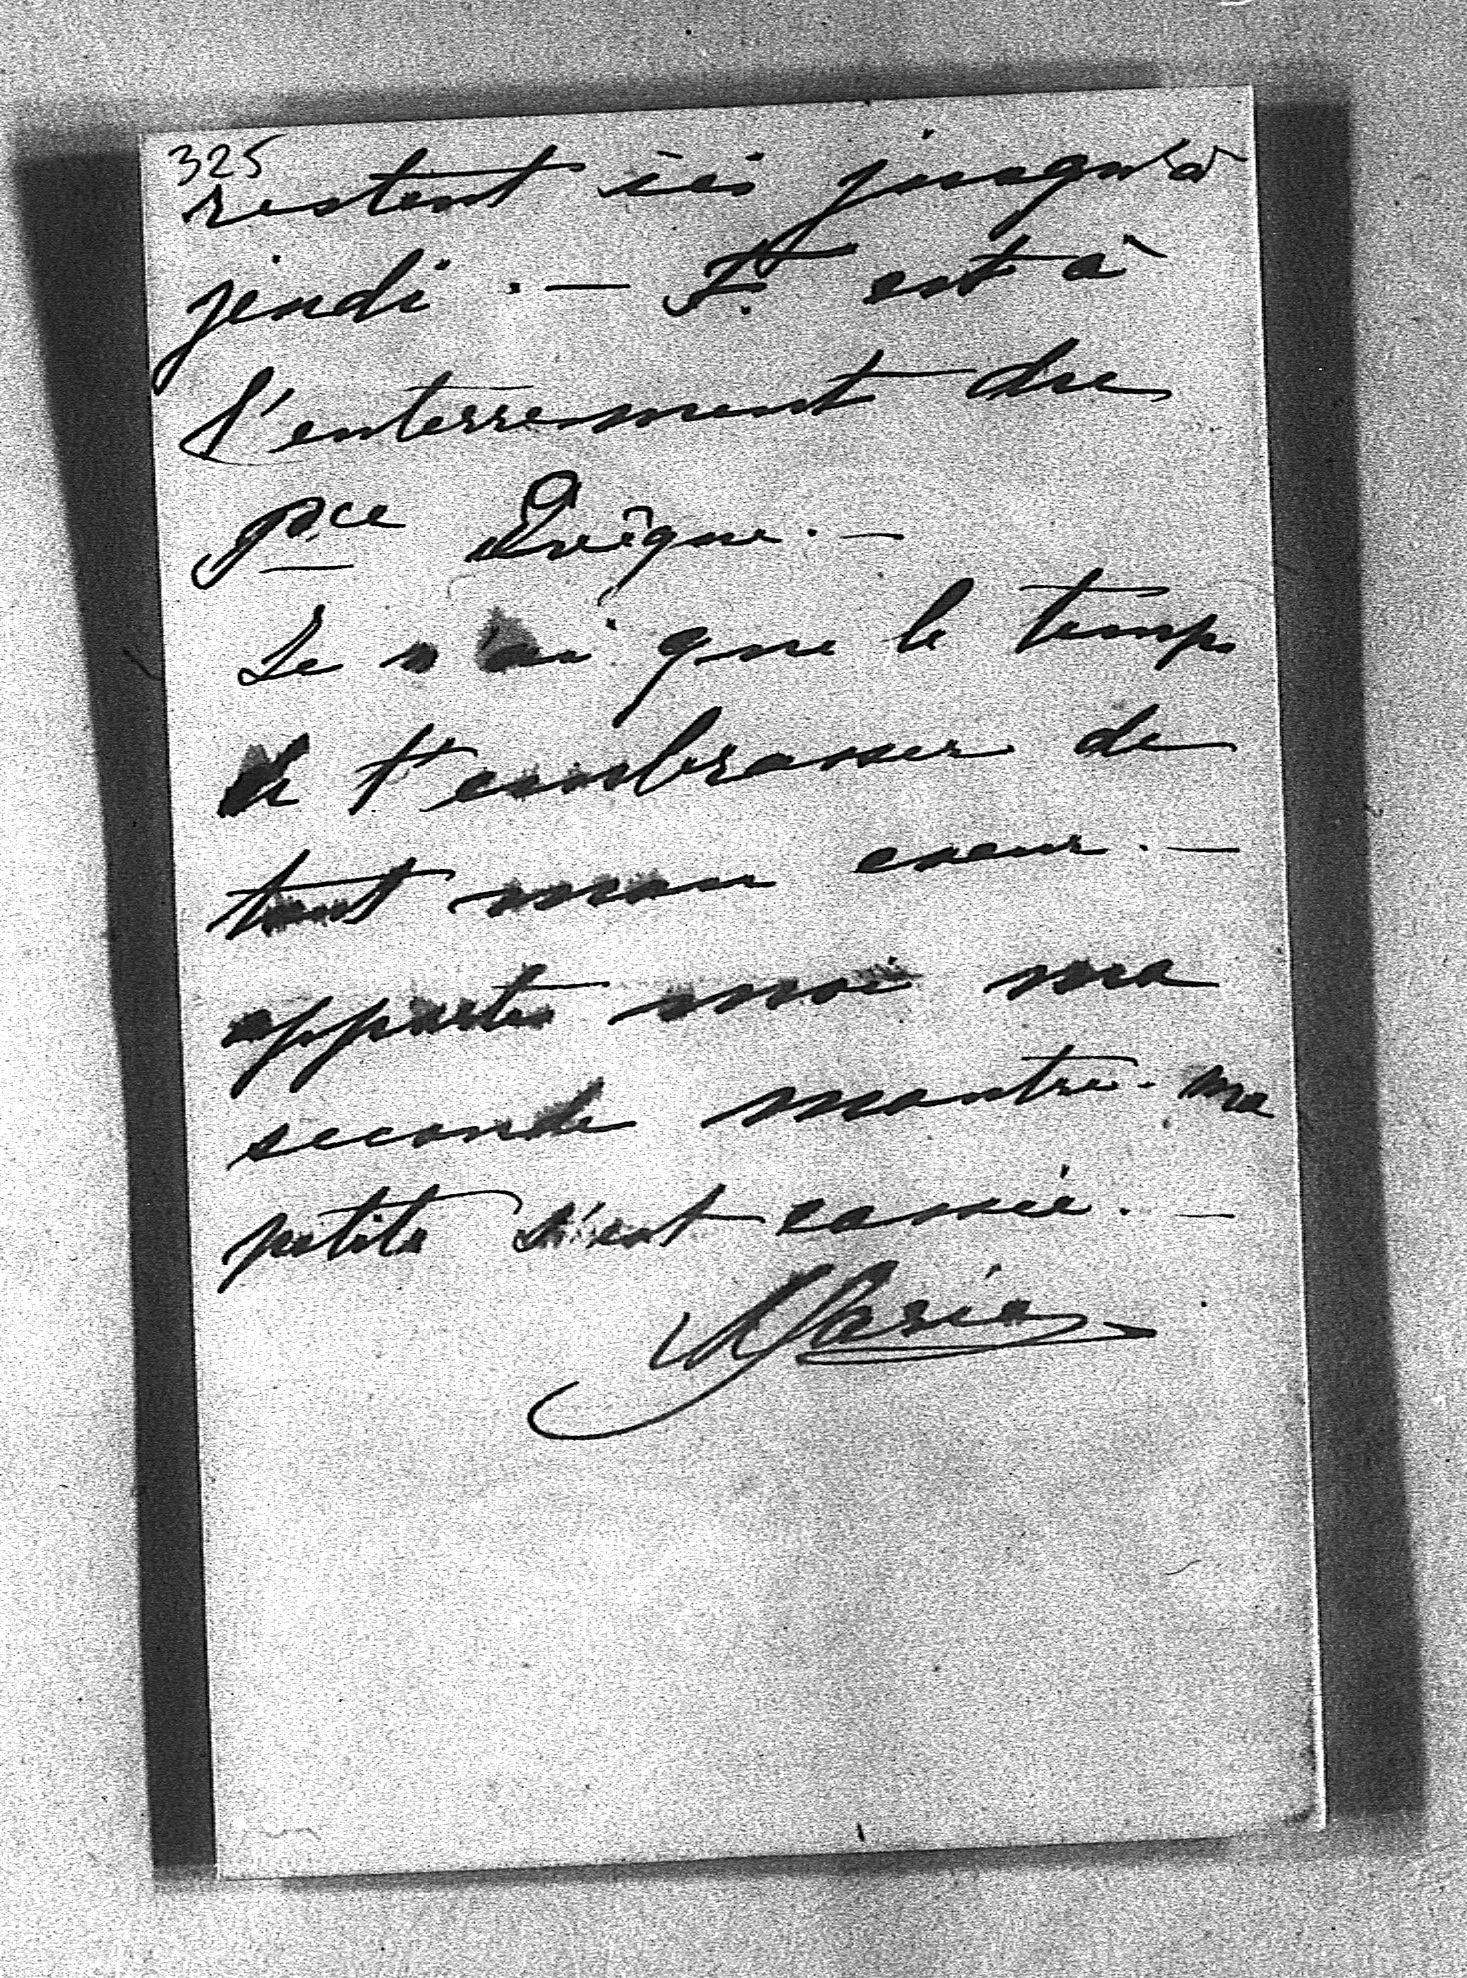 325
restent ici jusqu'à
jeudi . — F. est à
l'enterrement du
Pce Evêque. —
Je n'ai que le temps
de t'embrasser de
tout mon coeur. —
apporte moi ma
seconde montre. ma
petite s'est cassée. —
Marie